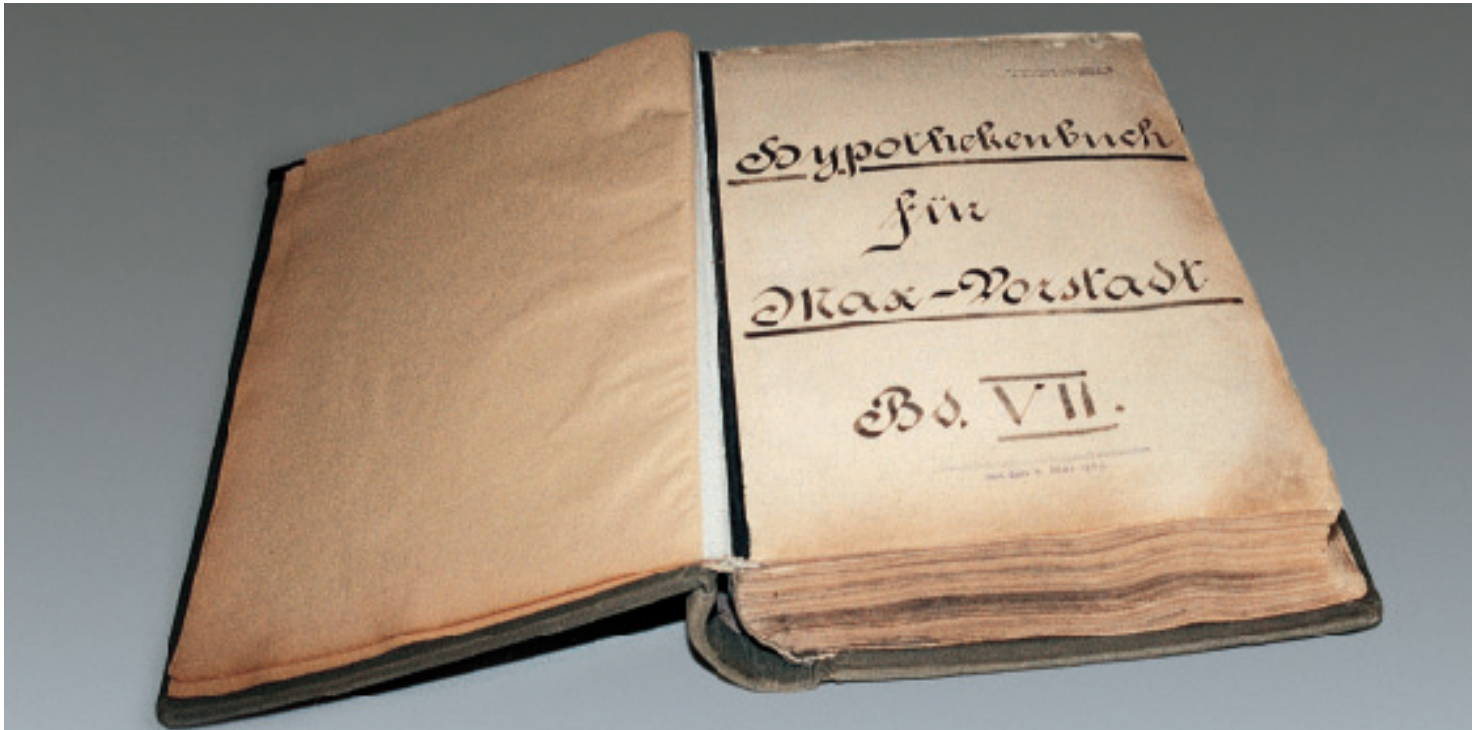 Hypothekenbuch
für
Max-Vorstadt
Bd. VII.